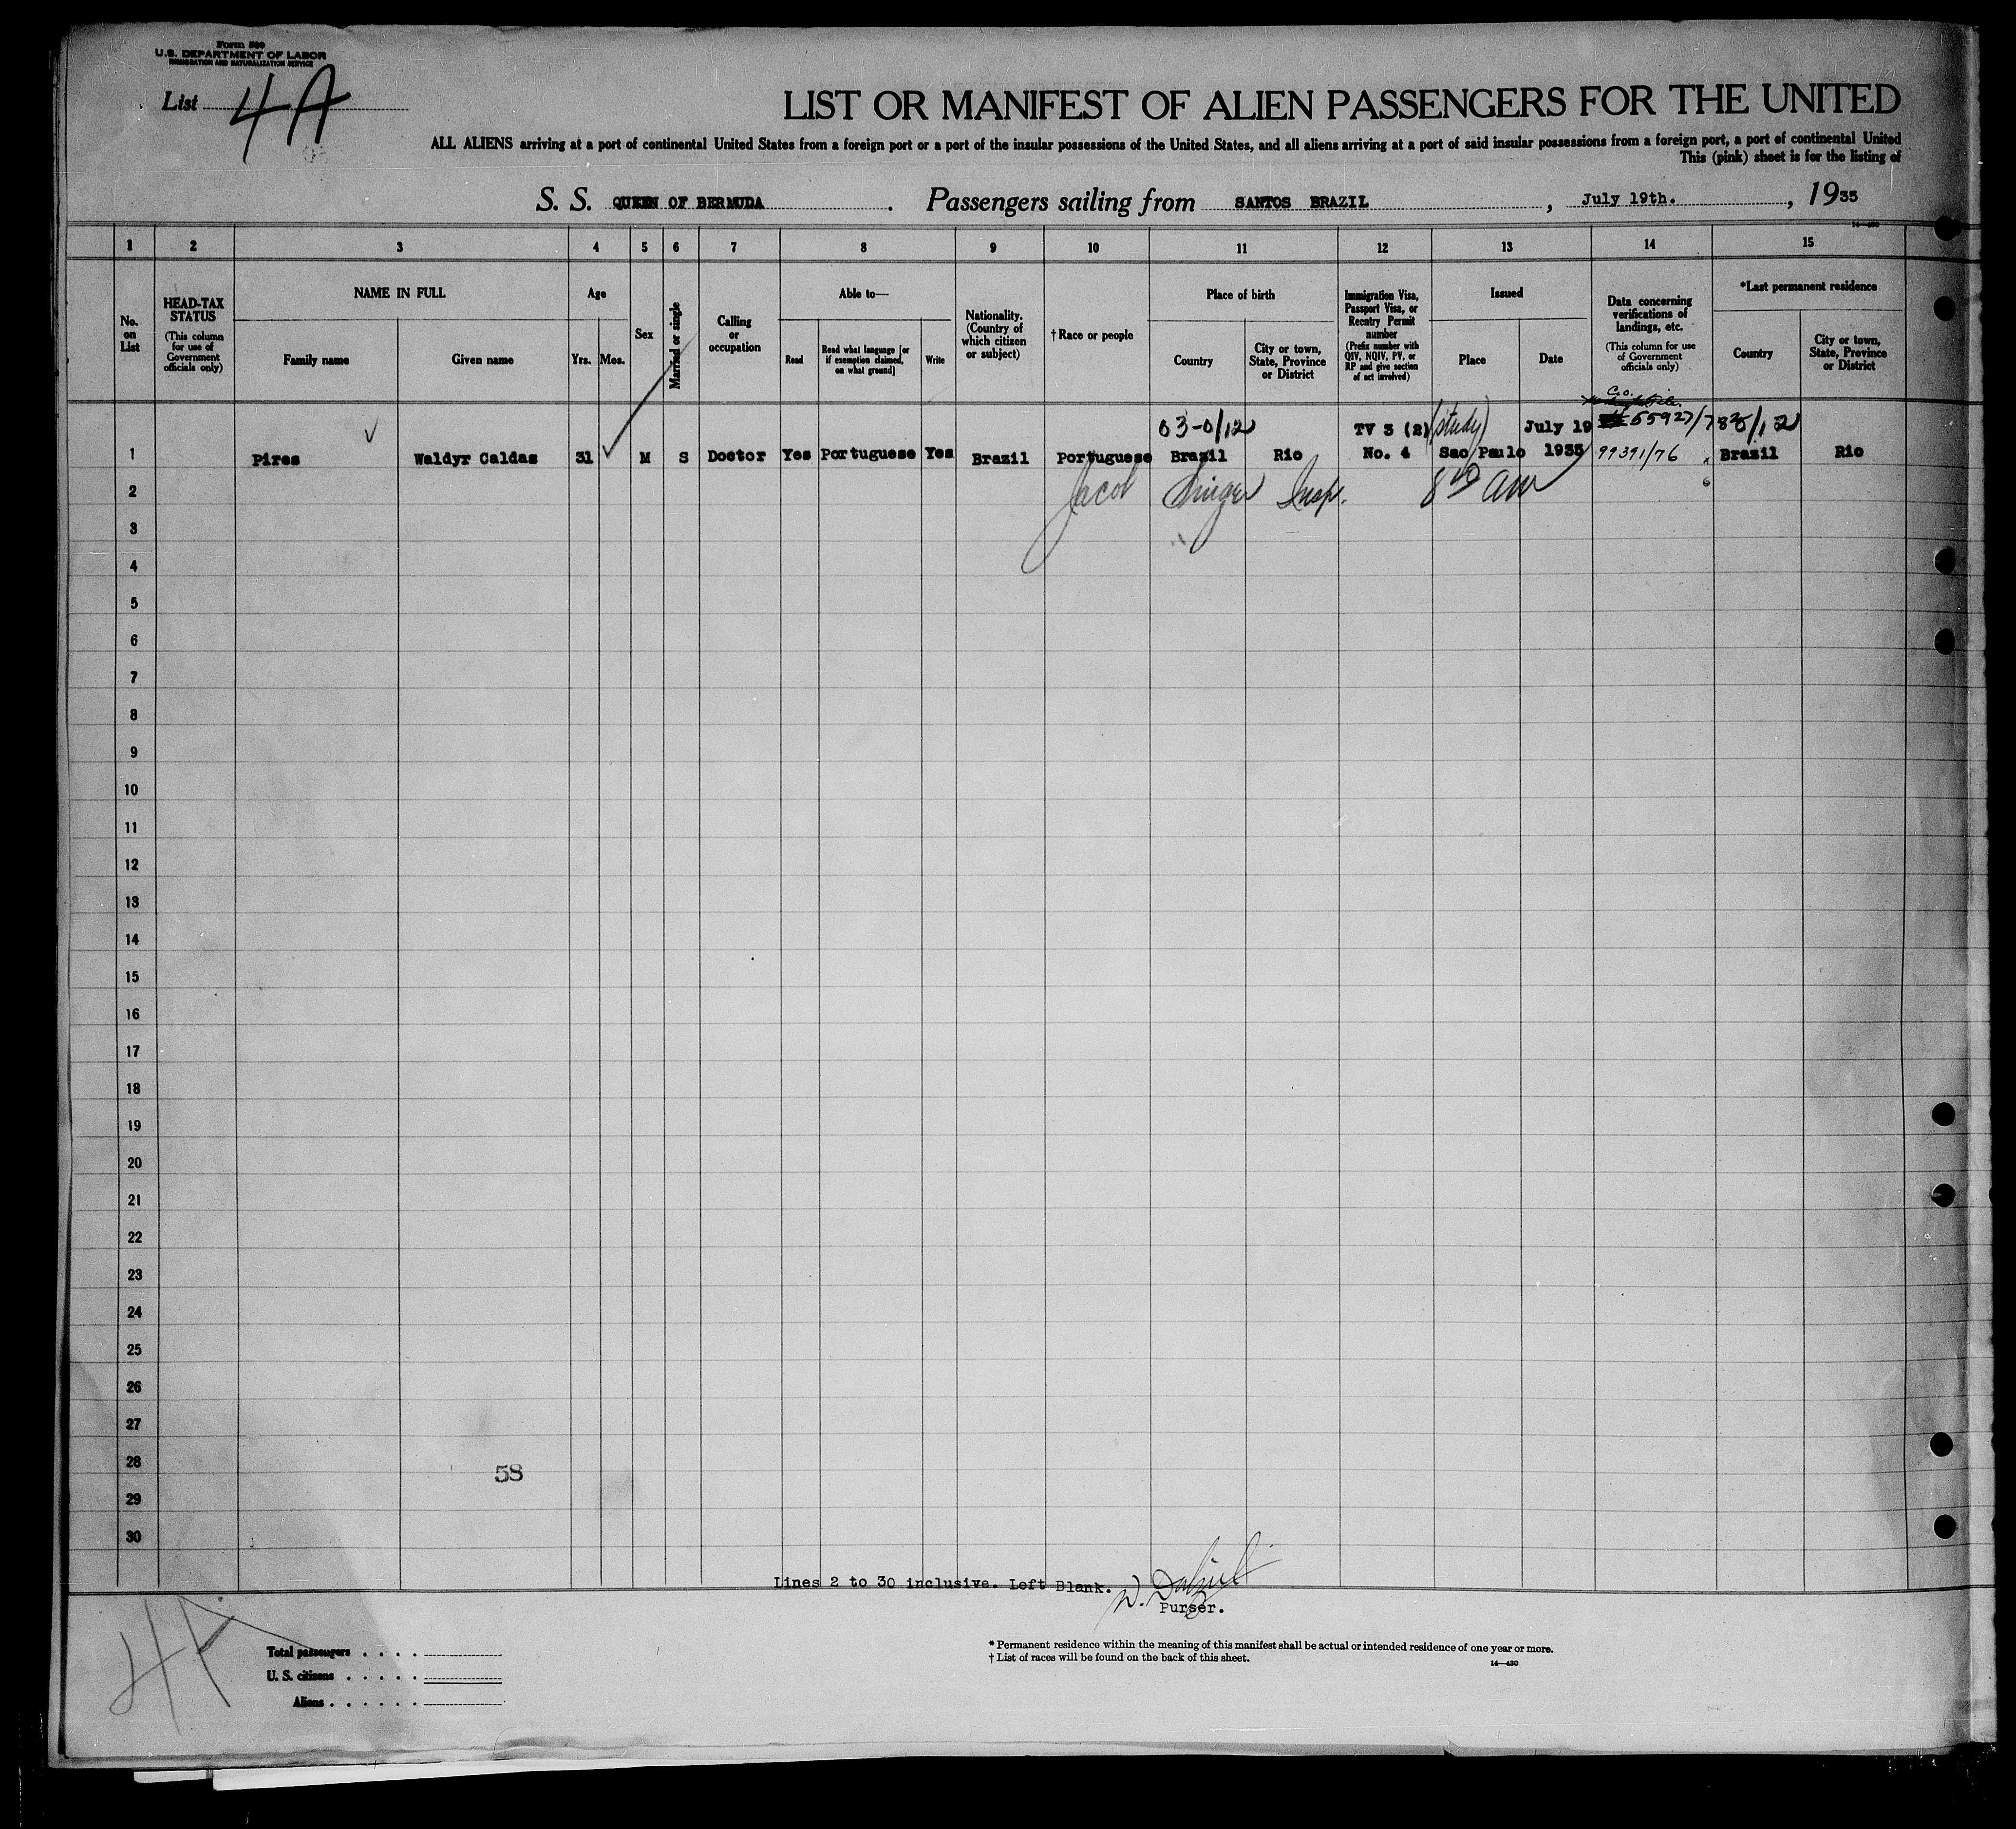 Form 500
U.S. DEPARTMENT OF LABOR
IMMIGRATION AND NATURALIZATION SERVICE
List 4A
LIST OR MANIFEST OF ALIEN PASSENGERS FOR THE UNITED
ALL ALIENS arriving at a port of continental United States from a foreign port or a port of the insular possessions of the United States, and all aliens arriving at a port of said insular possessions from a foreign port, a port of continental United
This (pink) sheet is for the listing of
S. S. QUEEN OF BERMUDA . Passengers sailing from SANTOS BRAZIL , July 19th. , 1935
1 2 3 4 5 6 7 8 9 10 11 12 13 14 15
No. on List
HEAD-TAX STATUS
(This column for use of Government officials only)
NAME IN FULL
Family name
Given name
Age
Yrs. Mos.
Sex
Married or single
Calling or occupation
Able to—
Read
Read what language [or if exemption claimed, on what ground]
Write
Nationality. (Country of which citizen or subject)
† Race or people
Place of birth
Country
City or town, State, Province or District
Immigration Visa, Passport Visa, or Reentry Permit number
(Prefix number with QIV, NQIV, PV, or RP and give section of act involved)
Issued
Place
Date
Data concerning verifications of landings, etc.
(This column for use of Government officials only)
*Last permanent residence
Country
City or town, State, Province or District
C.O.
03-0/12 TV 3 (2) (study) July 19 55927/788
1 Pires Waldyr Caldas 31 M S Doctor Yes Portuguese Yes Brazil Portuguese Brazil Rio No. 4 Sao Paulo 1935 99391/76 Brazil Rio
2 Jacob Singer Insp.
3
4
5
6
7
8
9
10
11
12
13
14
15
16
17
18
19
20
21
22
23
24
25
26
27
28 58
29
30
Lines 2 to 30 inclusive. Left Blank.
Purser.
Total passengers
U. S. citizens
Aliens
* Permanent residence within the meaning of this manifest shall be actual or intended residence of one year or more.
† List of races will be found on the back of this sheet.
14—430